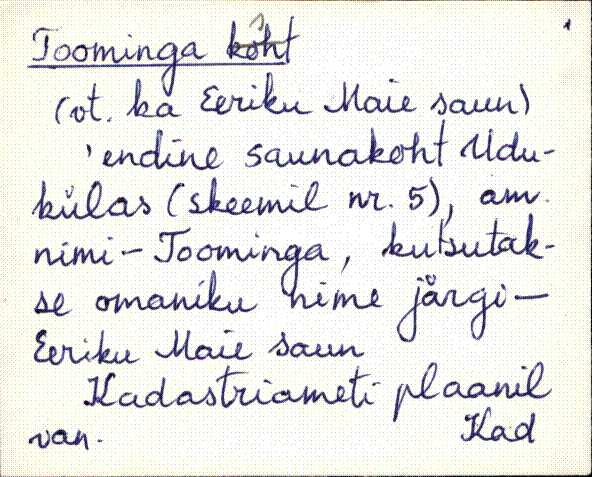 Toominga koht
(vt. ka Eeriku Maie saun)
'endine saunakoht Udu-
külas (skeemil nr. 5), am.
nimi - Toominga, kutsutak-
se omaniku nime järgi -
Eeriku Maie saun
Kadastriameti plaanil
van. Kad